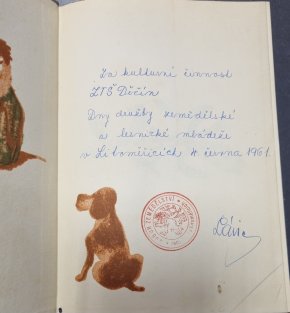 Za kulturní činnost
ZTŠ Děčín
Dny družby zemědělské
a lesnické mládeže
v Litoměřicích . června 1961.
ZEMĚDĚLSTVÍ